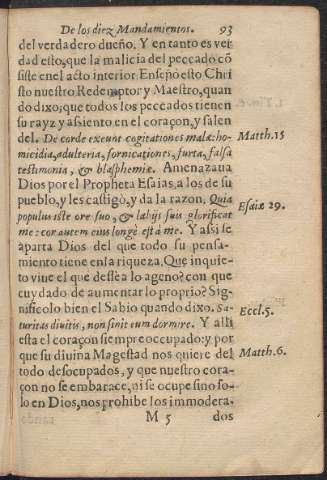 De los diez Mandamientos. 93
del verdadero dueño. Y en tanto es ver
dad esto, que la malicia del peccado cõ
siste en el acto interior. Enseño esto Chri
sto nuestro Redemptor y Maestro, quan
do dixo, que todos los peccados tienen
su rayz y assiento en el coraçon, y salen
del. De corde exeunt cogitationes malæ: ho-
micidia, adulteria, fornicationes, furta, falsa
testimonia, & blasphemiæ. Amenazaua
Dios por el Propheta Esaias, a los de su
pueblo, y les castigò, y da la razon. Quia
populus iste ore suo, & labijs suis glorificat
me: cor autem eius longè est á me. Y assi se
aparta Dios del que todo su pensa-
miento tiene en la riqueza. Que inquie-
to viue el que dessea lo ageno? con que
cuydado de aumentar lo proprio? Sig-
nificolo bien el Sabio quando dixo. Sa-
turitas diuitis, non sinit eum dormire. Y alli
esta el coraçon siempre occupado: y por
que su diuina Magestad nos quiere del
todo desocupados, y que nuestro cora-
çon no se embarace, ni se ocupe sino so-
lo en Dios, nos prohibe los immodera-
M 5 dos
Matth. 15
Esaiæ 29.
Eccl. 5.
Matth. 6.